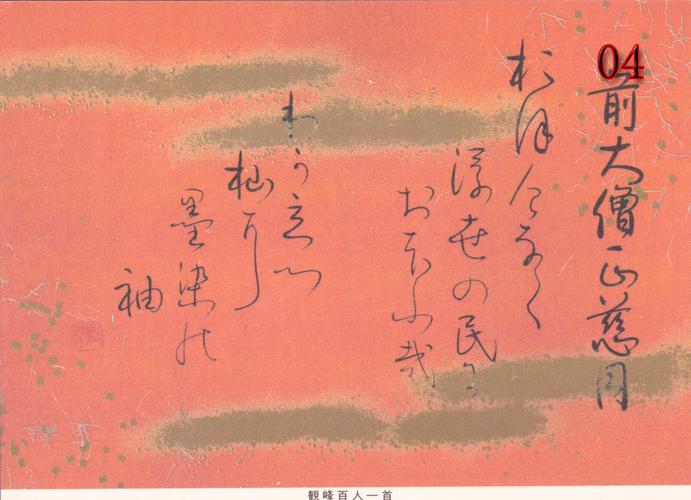 04
前大僧正慈円
於保介なく
浮世の民に
おほふ哉
わか立つ
杣に
墨染能
袖
観峰百人一首